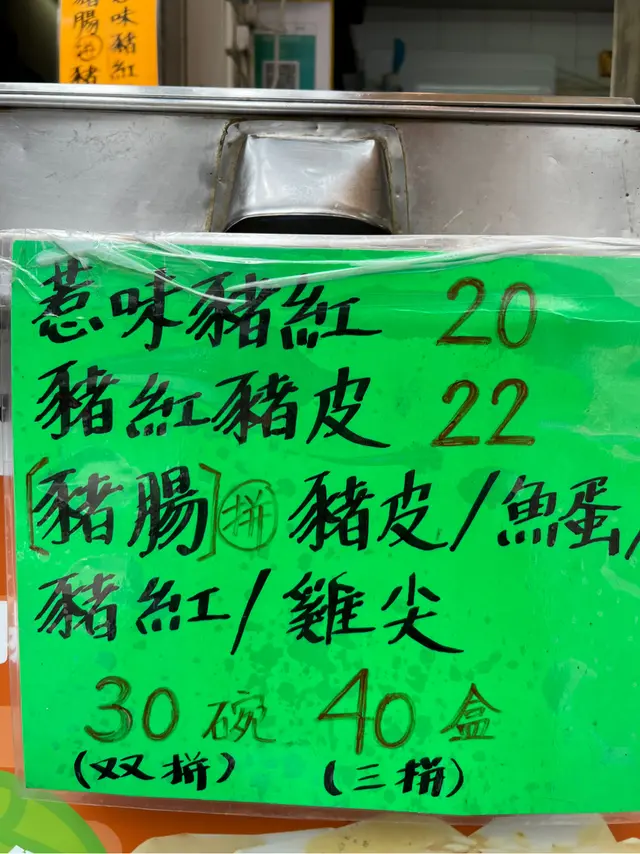 豬腸拼豬
惹味豬紅
惹味豬紅 20
豬紅豬皮 22
[豬腸]拼 豬皮/魚蛋/
豬紅/雞尖
30碗 40盒
(双拼) (三拼)